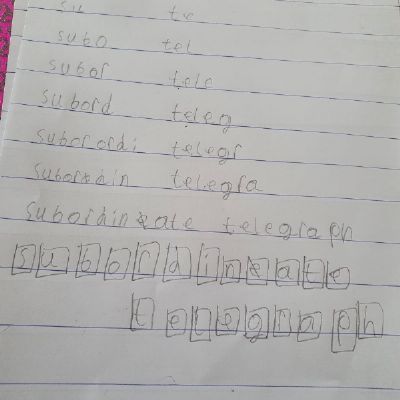 su te
subo tel
subor tele
subord teleg
suborordi telegr
subordin telegra
subordinate telegraph
subordinate
telegraph